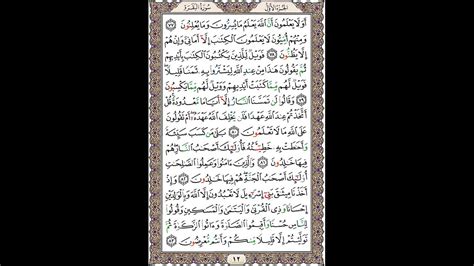 الجزء الأول
سورة البقرة
أَوَلَا يَعْلَمُونَ أَنَّ ٱللَّهَ يَعْلَمُ مَا يُسِرُّونَ وَمَا يُعْلِنُونَ ٧٧
وَمِنْهُمْ أُمِّيُّونَ لَا يَعْلَمُونَ ٱلْكِتَٰبَ إِلَّآ أَمَانِىَّ وَإِنْ هُمْ
إِلَّا يَظُنُّونَ ٧٨ فَوَيْلٌ لِّلَّذِينَ يَكْتُبُونَ ٱلْكِتَٰبَ بِأَيْدِيهِمْ
ثُمَّ يَقُولُونَ هَٰذَا مِنْ عِندِ ٱللَّهِ لِيَشْتَرُوا۟ بِهِۦ ثَمَنًا قَلِيلًا
فَوَيْلٌ لَّهُم مِّمَّا كَتَبَتْ أَيْدِيهِمْ وَوَيْلٌ لَّهُم مِّمَّا يَكْسِبُونَ
٧٩ وَقَالُوا۟ لَن تَمَسَّنَا ٱلنَّارُ إِلَّآ أَيَّامًا مَّعْدُودَةً قُلْ
أَتَّخَذْتُمْ عِندَ ٱللَّهِ عَهْدًا فَلَن يُخْلِفَ ٱللَّهُ عَهْدَهُۥٓ أَمْ تَقُولُونَ
عَلَى ٱللَّهِ مَا لَا تَعْلَمُونَ ٨٠ بَلَىٰ مَن كَسَبَ سَيِّئَةً
وَأَحَٰطَتْ بِهِۦ خَطِيٓـَٔتُهُۥ فَأُو۟لَٰٓئِكَ أَصْحَٰبُ ٱلنَّارِ هُمْ
فِيهَا خَٰلِدُونَ ٨١ وَٱلَّذِينَ ءَامَنُوا۟ وَعَمِلُوا۟ ٱلصَّٰلِحَٰتِ
أُو۟لَٰٓئِكَ أَصْحَٰبُ ٱلْجَنَّةِ هُمْ فِيهَا خَٰلِدُونَ ٨٢ وَإِذْ
أَخَذْنَا مِيثَٰقَ بَنِىٓ إِسْرَٰٓءِيلَ لَا تَعْبُدُونَ إِلَّا ٱللَّهَ وَبِٱلْوَٰلِدَيْنِ
إِحْسَانًا وَذِى ٱلْقُرْبَىٰ وَٱلْيَتَٰمَىٰ وَٱلْمَسَٰكِينِ وَقُولُوا۟
لِلنَّاسِ حُسْنًا وَأَقِيمُوا۟ ٱلصَّلَوٰةَ وَءَاتُوا۟ ٱلزَّكَوٰةَ ثُمَّ
تَوَلَّيْتُمْ إِلَّا قَلِيلًا مِّنكُمْ وَأَنتُم مُّعْرِضُونَ ٨٣
١٢